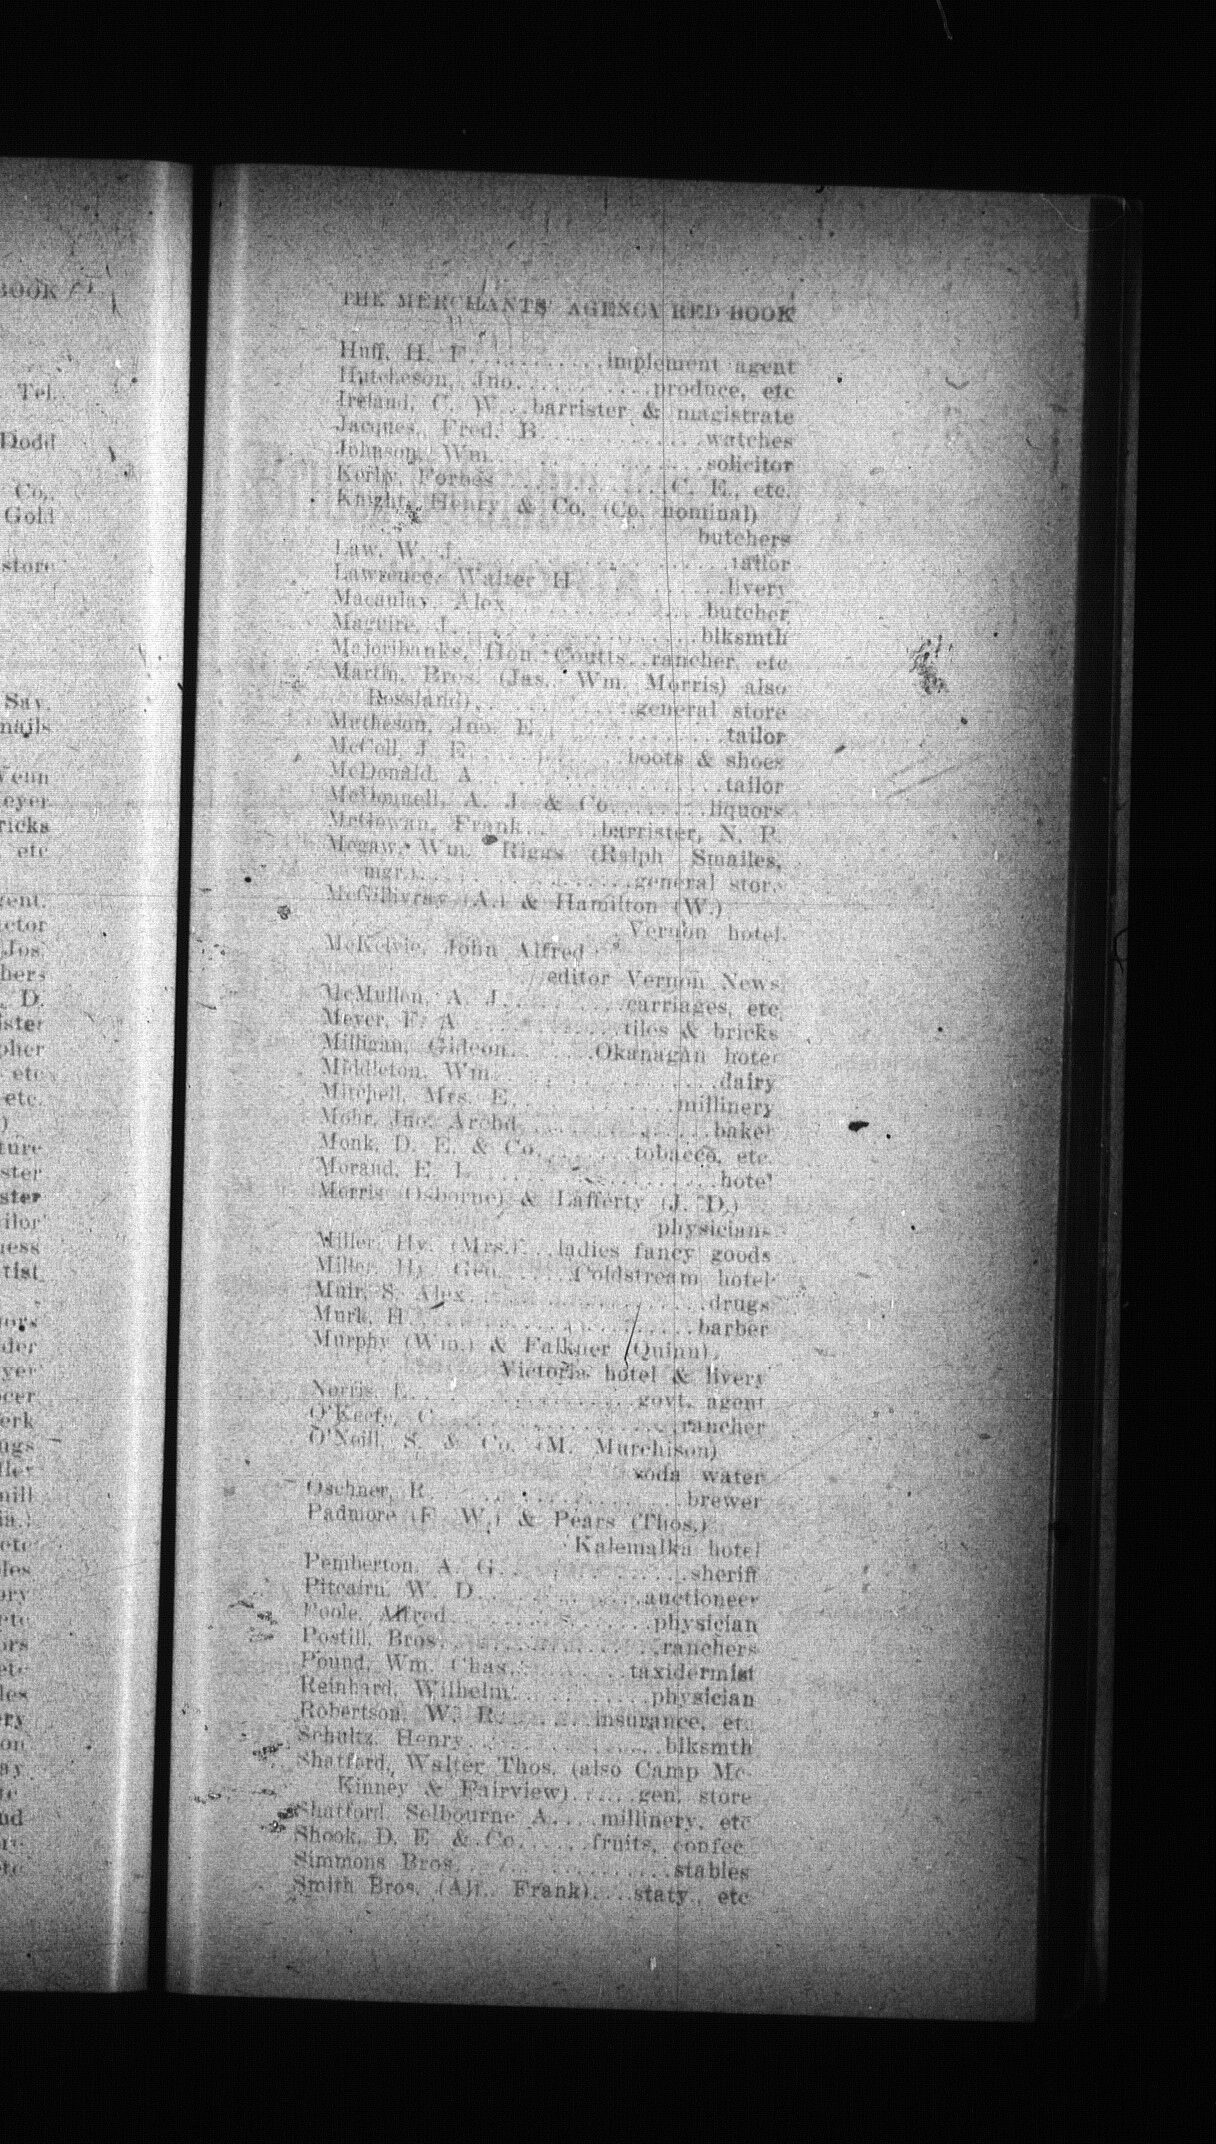 BOOK
Tel.
Dodd
Co,.
Gold
store
Say.
nails
Venn
eyer
ricks
etc
gent.
ctor
Jos.
hers
. D.
ister
pher
etc
etc.
)
ture
ster
ster
ilor
ness
tist
ors
der
yer
ocer
erk
ngs
ller
mill
ia.)
etc
les
ory
etc
ors
etc
les
ery
on
ay
nd
etc
THE MERCHANTS' AGENCY RED BOOK
Huff, H. F............implement agent
Hutcheson, Jno............produce, etc
Ireland, C. W...barrister & magistrate
Jacques, Fred. B...............watches
Johnson, Wm..................solicitor
Kerby, Forbes...............C. E., etc.
Knight, Henry & Co. (Co. nominal)
butchers
Law, W. J.......................tailor
Lawrence, Walter H.............livery
Macaulay, Alex.................butcher
Maguire, J.....................blksmth
Majoribanks, Hon. Coutts..rancher, etc
Martin, Bros. (Jas., Wm. Morris) also
Rossland)..............general store
Matheson, Jno. E................tailor
McColl, J. E.............boots & shoes
McDonald, A.....................tailor
McDonnell, A. J. & Co.........liquors
McGowan, Frank......barrister, N. P.
Megaw, Wm. Riggs (Ralph Smailes,
mgr.)..................general store
McGillivray (A.) & Hamilton (W.)
Vernon hotel.
McKelvie, John Alfred
editor Vernon News
McMullen, A. J...........carriages, etc.
Meyer, F. A.............tiles & bricks
Milligan, Gideon.......Okanagan hotel
Middleton, Wm....................dairy
Mitchell, Mrs. E..............millinery
Mohr, Jno. Archd.................baker
Monk, D. E. & Co.........tobacco, etc.
Morand, E. L.....................hotel
Morris (Osborne) & Lafferty (J. D.)
physicians
Miller, Hy. (Mrs.)...ladies fancy goods
Miller, Hy. Geo.......Coldstream hotel
Muir, S. Alex....................drugs
Murk, H.........................barber
Murphy (Wm.) & Falkner (Quinn)
Victoria hotel & livery
Norris, L...................govt. agent
O'Keefe, C....................rancher
O'Neill, S. & Co. (M. Murchison)
soda water
Oschner, R......................brewer
Padmore (F. W.) & Pears (Thos.)
Kalemalka hotel
Pemberton, A. G................sheriff
Pitcairn, W. D..............auctioneer
Poole, Alfred................physician
Postill, Bros.................ranchers
Pound, Wm. Chas...........taxidermist
Reinhard, Wilhelm............physician
Robertson, W. R.........insurance, etc
Schultz, Henry.................blksmth
Shatford, Walter Thos. (also Camp Mc-
Kinney & Fairview)......gen. store
Shatford, Selbourne A....millinery, etc
Shook, D. E. & Co......fruits, confec
Simmons Bros..................stables
Smith Bros. (Alf., Frank)....staty., etc